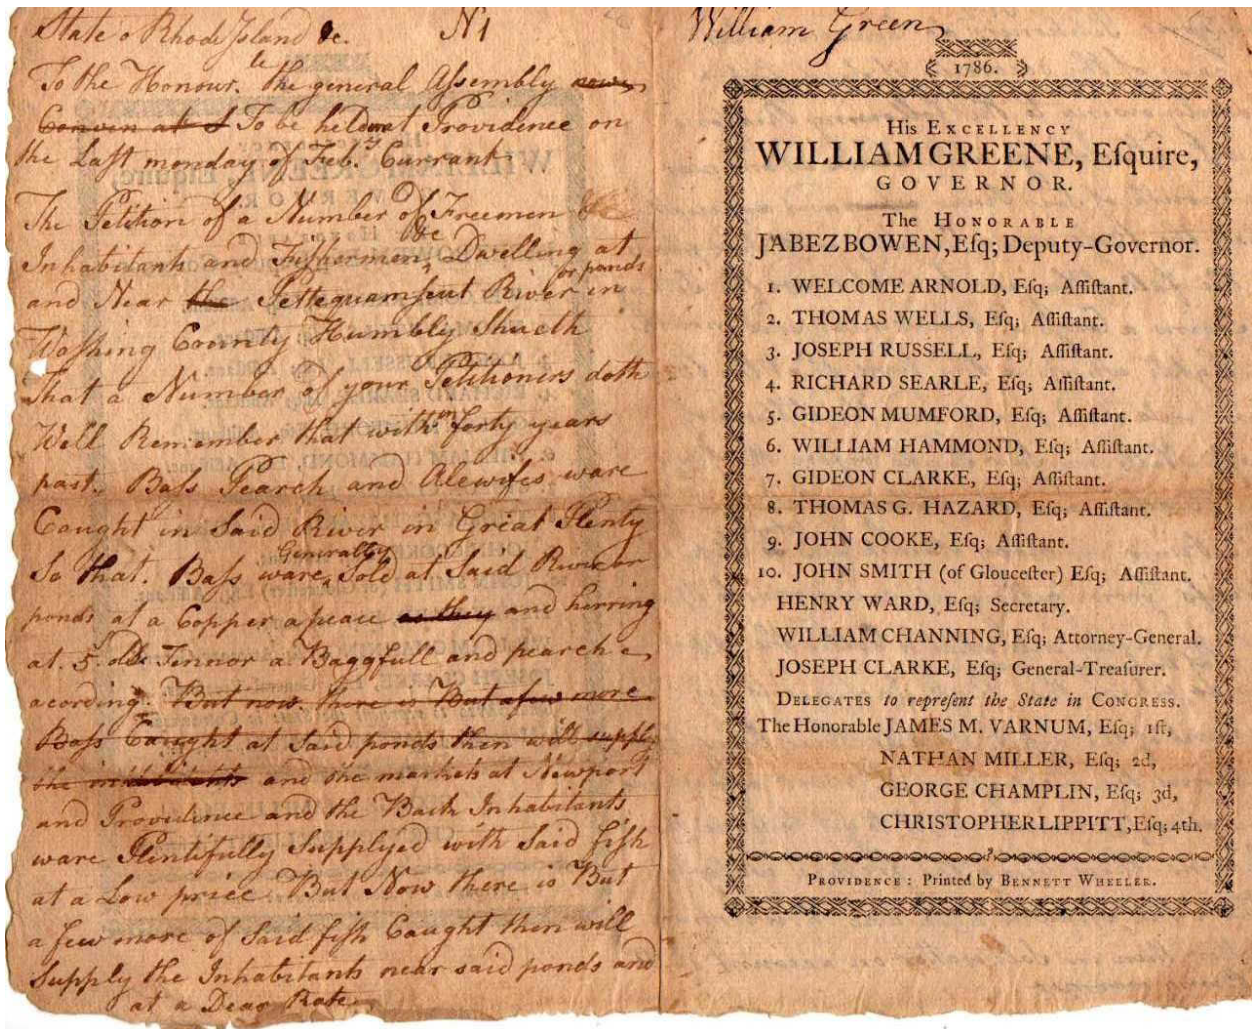 State o Rhode Island &c. N1
To the Honour.le the general Assembly now
Conven at S To be held at Providence on
the Last monday of Feb.y Currant
The Petition of a Number of Freemen
Inhabitants and Fishermen, &c Dwelling at
and Near the Pettequamscut River or ponds in
Washing County Humbly Sheweth
That a Number of your Petitioners doth
Well Remember that within forty years
past. Bass Pearch and Alewifes ware
Caught in Said River in Great Plenty
So that. Bass ware Generally Sold at Said River or
ponds at a Copper apeace as they and herring
at. 5. old Tennor a Baggfull and pearch
acording. But now. there is But a few more
Bass Caught at Said ponds then will supply
the inhabitants and the markets at Newport
and Providence and the Back Inhabitants
ware Plentifully Supplyed with Said fish
at a Low price But Now there is But
a few more of Said fish Caught then will
Supply the Inhabitants near said ponds and
at a Dear Rate
William Green
1786.
His EXCELLENCY
WILLIAM GREENE, Eſquire,
GOVERNOR.
The HONORABLE
JABEZ BOWEN, Eſq; Deputy-Governor.
1. WELCOME ARNOLD, Eſq; Aſſiſtant.
2. THOMAS WELLS, Eſq; Aſſiſtant.
3. JOSEPH RUSSELL, Eſq; Aſſiſtant.
4. RICHARD SEARLE, Eſq; Aſſiſtant.
5. GIDEON MUMFORD, Eſq; Aſſiſtant.
6. WILLIAM HAMMOND, Eſq; Aſſiſtant.
7. GIDEON CLARKE, Eſq; Aſſiſtant.
8. THOMAS G. HAZARD, Eſq; Aſſiſtant.
9. JOHN COOKE, Eſq; Aſſiſtant.
10. JOHN SMITH (of Glouceſter) Eſq; Aſſiſtant.
HENRY WARD, Eſq; Secretary.
WILLIAM CHANNING, Eſq; Attorney-General.
JOSEPH CLARKE, Eſq; General-Treaſurer.
DELEGATES to repreſent the State in CONGRESS.
The Honorable JAMES M. VARNUM, Eſq; 1ſt,
NATHAN MILLER, Eſq; 2d,
GEORGE CHAMPLIN, Eſq; 3d,
CHRISTOPHER LIPPITT, Eſq; 4th.
PROVIDENCE: Printed by BENNETT WHEELER.